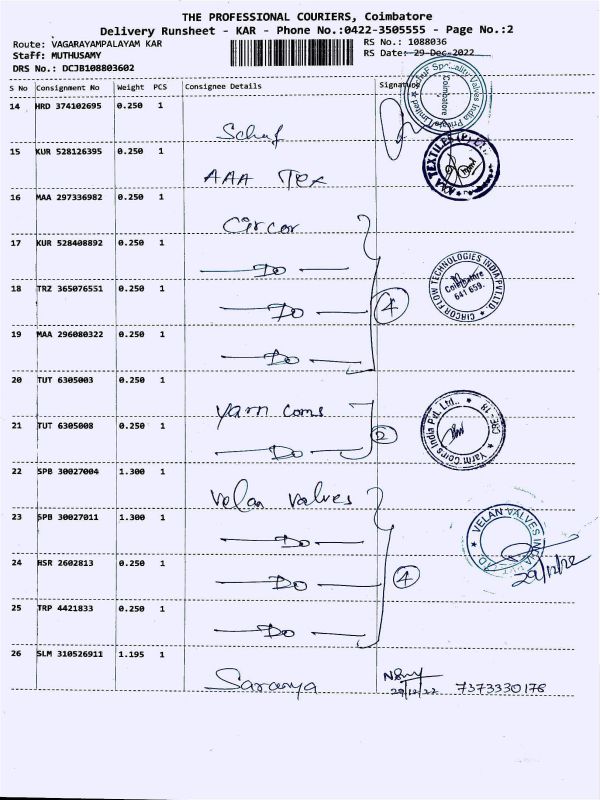 THE PROFESSIONAL COURIERS, Coimbatore
Delivery Runsheet - KAR - Phone No.:0422-3505555 - Page No.:2
Route: VAGARAYAMPALAYAM KAR
RS No.: 1088036
Staff: MUTHUSAMY
RS Date: 29-Dec-2022
DRS No.: DCJB108803602
S No Consignment No Weight PCS Consignee Details Signature
14 HRD 374102695 0.250 1
Coimbatore
15 KUR 528126395 0.250 1
AAA TEXTILES
AAA Tex
16 MAA 297336982 0.250 1
Circor
17 KUR 528408892 0.250 1
Do
18 TRZ 365076551 0.250 1
Do
4
CIRCOR FLOW TECHNOLOGIES INDIA PVT LTD
Coimbatore
641 659.
19 MAA 296080322 0.250 1
Do
20 TUT 6305003 0.250 1
Yarn Coms
21 TUT 6305008 0.250 1
Do
2
India Pvt. Ltd.,
CBE - 18
22 SPB 30027004 1.300 1
Velan Valves
23 SPB 30027011 1.300 1
Do
VELAN VALVES
24 HSR 2602813 0.250 1
Do
4
29/12/22
25 TRP 4421833 0.250 1
Do
26 SLM 310526911 1.195 1
Saranya
29/12/22 7373330176